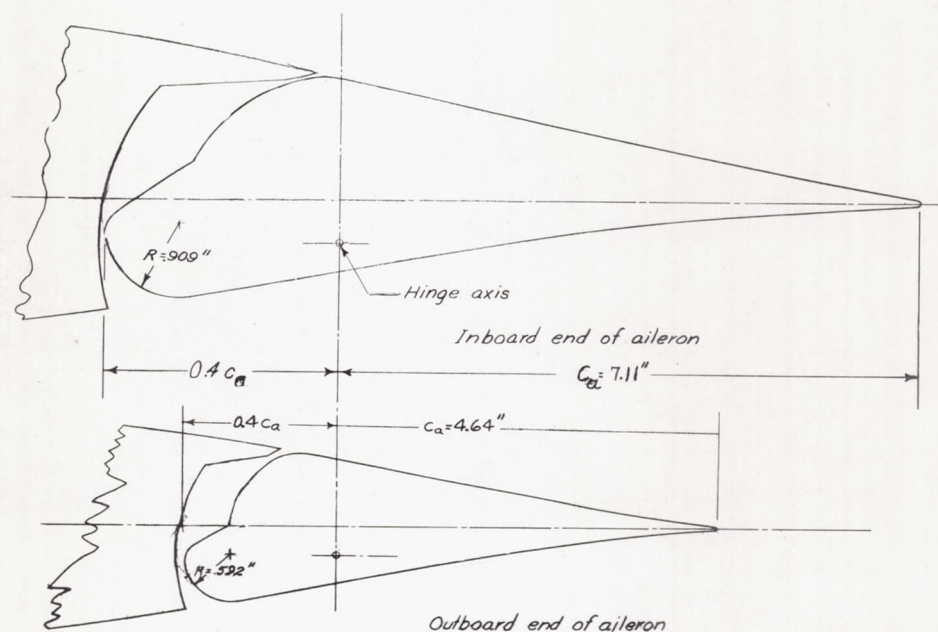 R=.909"
Hinge axis
Inboard end of aileron
0.4 ca
Ca=7.11"
0.4 ca
ca=4.64"
R=.592"
Outboard end of aileron